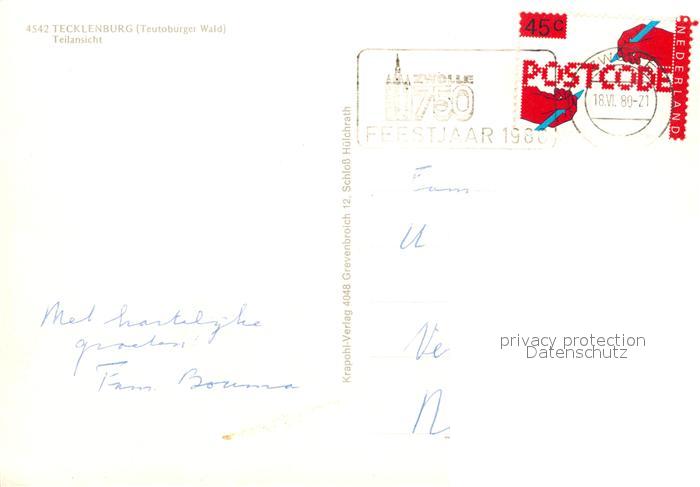 4542 TECKLENBURG (Teutoburger Wald)
Teilansicht
45c
NEDERLAND
POSTCODE
ZWOLLE
750
FEESTJAAR 1980
18.VI.80-21
Krapohl-Verlag 4048 Grevenbroich 12, Schloß Hülchrath
Fam
U
Ve
N.
Met hartelijke
groeten!
Fam. Bouma
privacy protection
Datenschutz